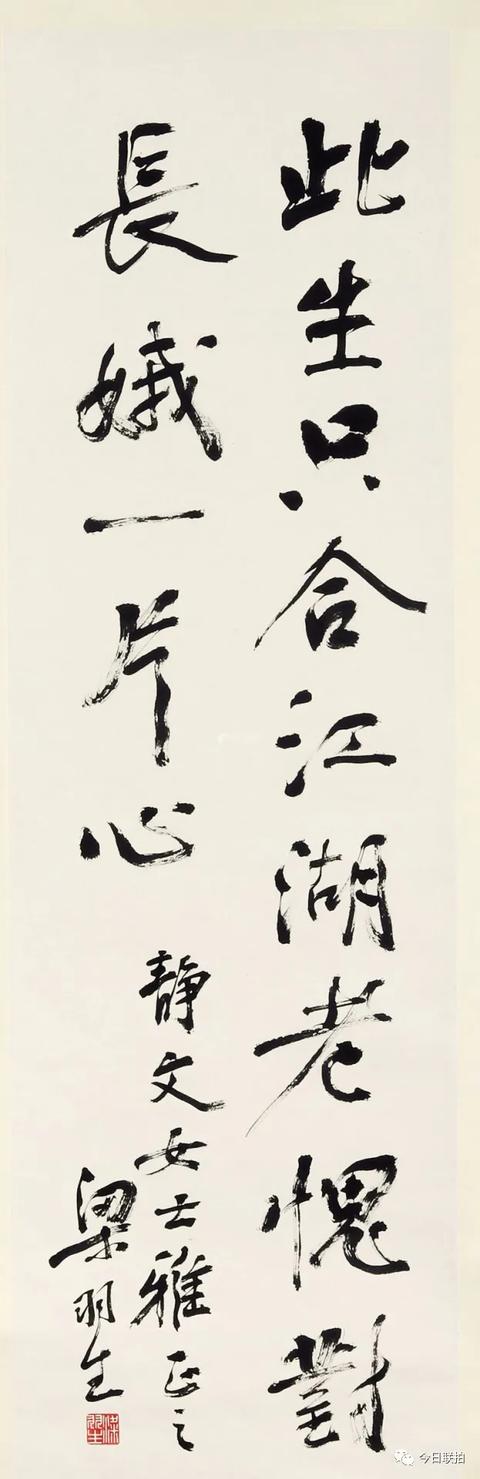 此生只合江湖老愧對
長娥一片心
静文女士雅正之
梁羽生
今日联拍